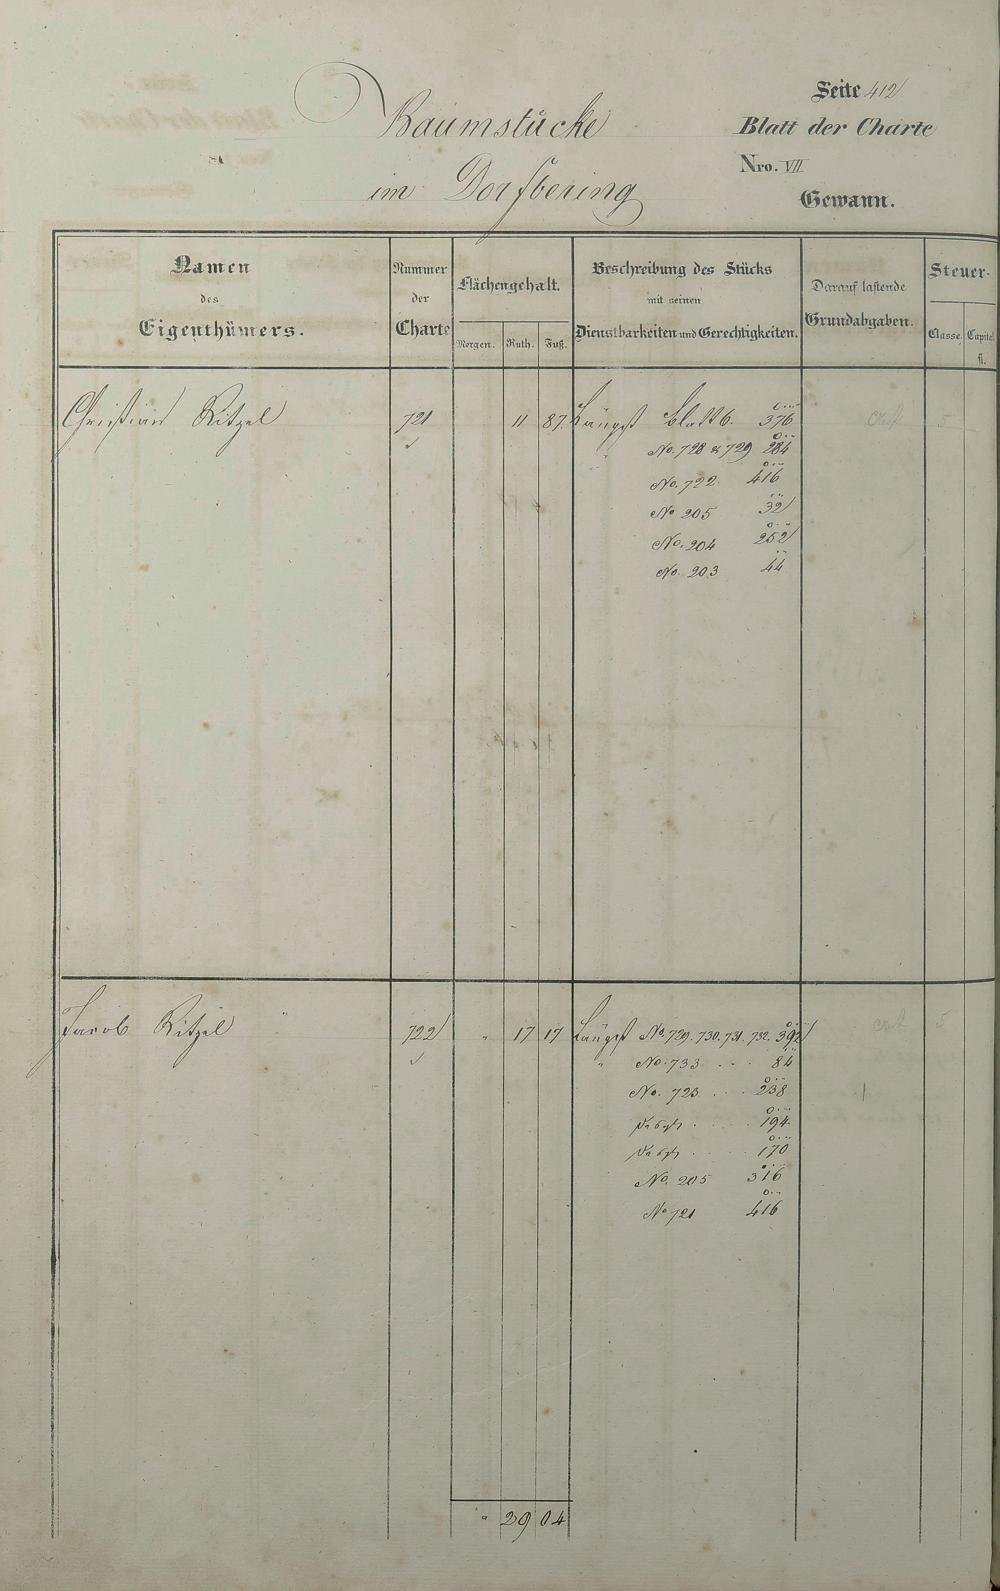 Seite 412
Baumstücke
Blatt der Charte
Nro. VII
im Dorfbering
Gewann.
Namen des Eigenthümers.
Nummer der Charte
Flächengehalt.
Morgen. Ruth. Fuß.
Beschreibung des Stücks mit seinen Dienstbarkeiten und Gerechtigkeiten.
Darauf lastende Grundabgaben.
Steuer-
Classe. Capital fl.
Christian Ritzel 721 11 87. Längst Blatt 6. 376 5
No. 728 & 729 284
No. 722 416
No 205 32
No. 204 252
No. 203 44
Jacob Ritzel 722 " 17 17 Längst No. 729. 730. 731. 732. 392 5
" No. 733 . . . 84
No. 723 . . . 238
. . . . 194
. . . . 170
No. 205 316
No 721 416
" 29 04